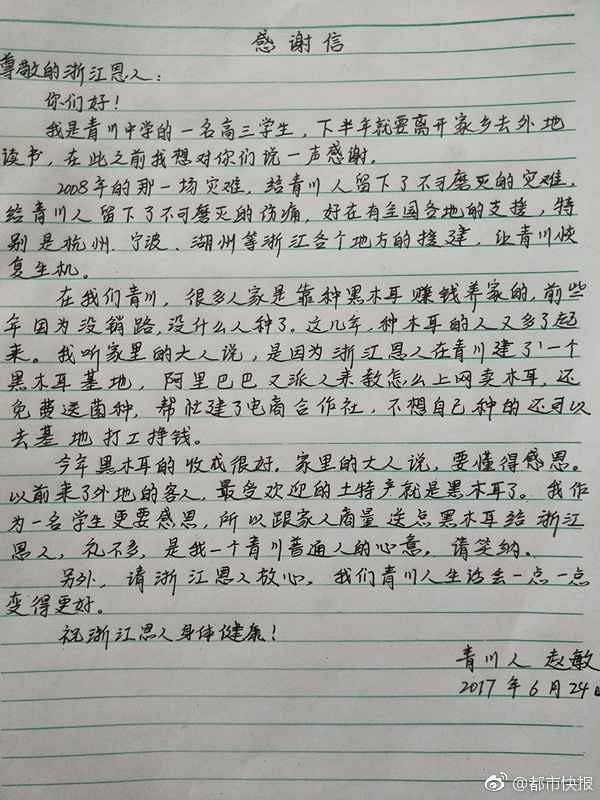 感谢信
尊敬的浙江恩人:
你们好!
我是青川中学的一名高三学生,下半年就要离开家乡去外地
读书,在此之前我想对你们说一声感谢。
2008年的那一场灾难,给青川人留下了不可磨灭的灾难,
给青川人留下了不可磨灭的伤痛,好在有全国各地的支援,特
别是杭州、宁波、湖州等浙江各个地方的援建,让青川恢
复生机。
在我们青川,很多人家是靠种黑木耳赚钱养家的,前些
年因为没销路,没什么人种了。这几年,种木耳的人又多了起
来。我听家里的大人说,是因为浙江恩人在青川建了一个
黑木耳基地,阿里巴巴又派人来教怎么上网卖木耳,还
免费送菌种,帮忙建了电商合作社,不想自己种的还可以
去基地打工挣钱。
今年黑木耳的收成很好。家里的大人说,要懂得感恩。
以前来了外地的客人,最受欢迎的土特产就是黑木耳了。我作
为一名学生更要感恩,所以跟家人商量送点黑木耳给浙江
恩人,礼不多,是我一个青川普通人的心意。请笑纳。
另外,请浙江恩人放心,我们青川人生活会一点一点
变得更好。
祝浙江恩人身体健康!
青川人 赵敏
2017年6月24日
@都市快报